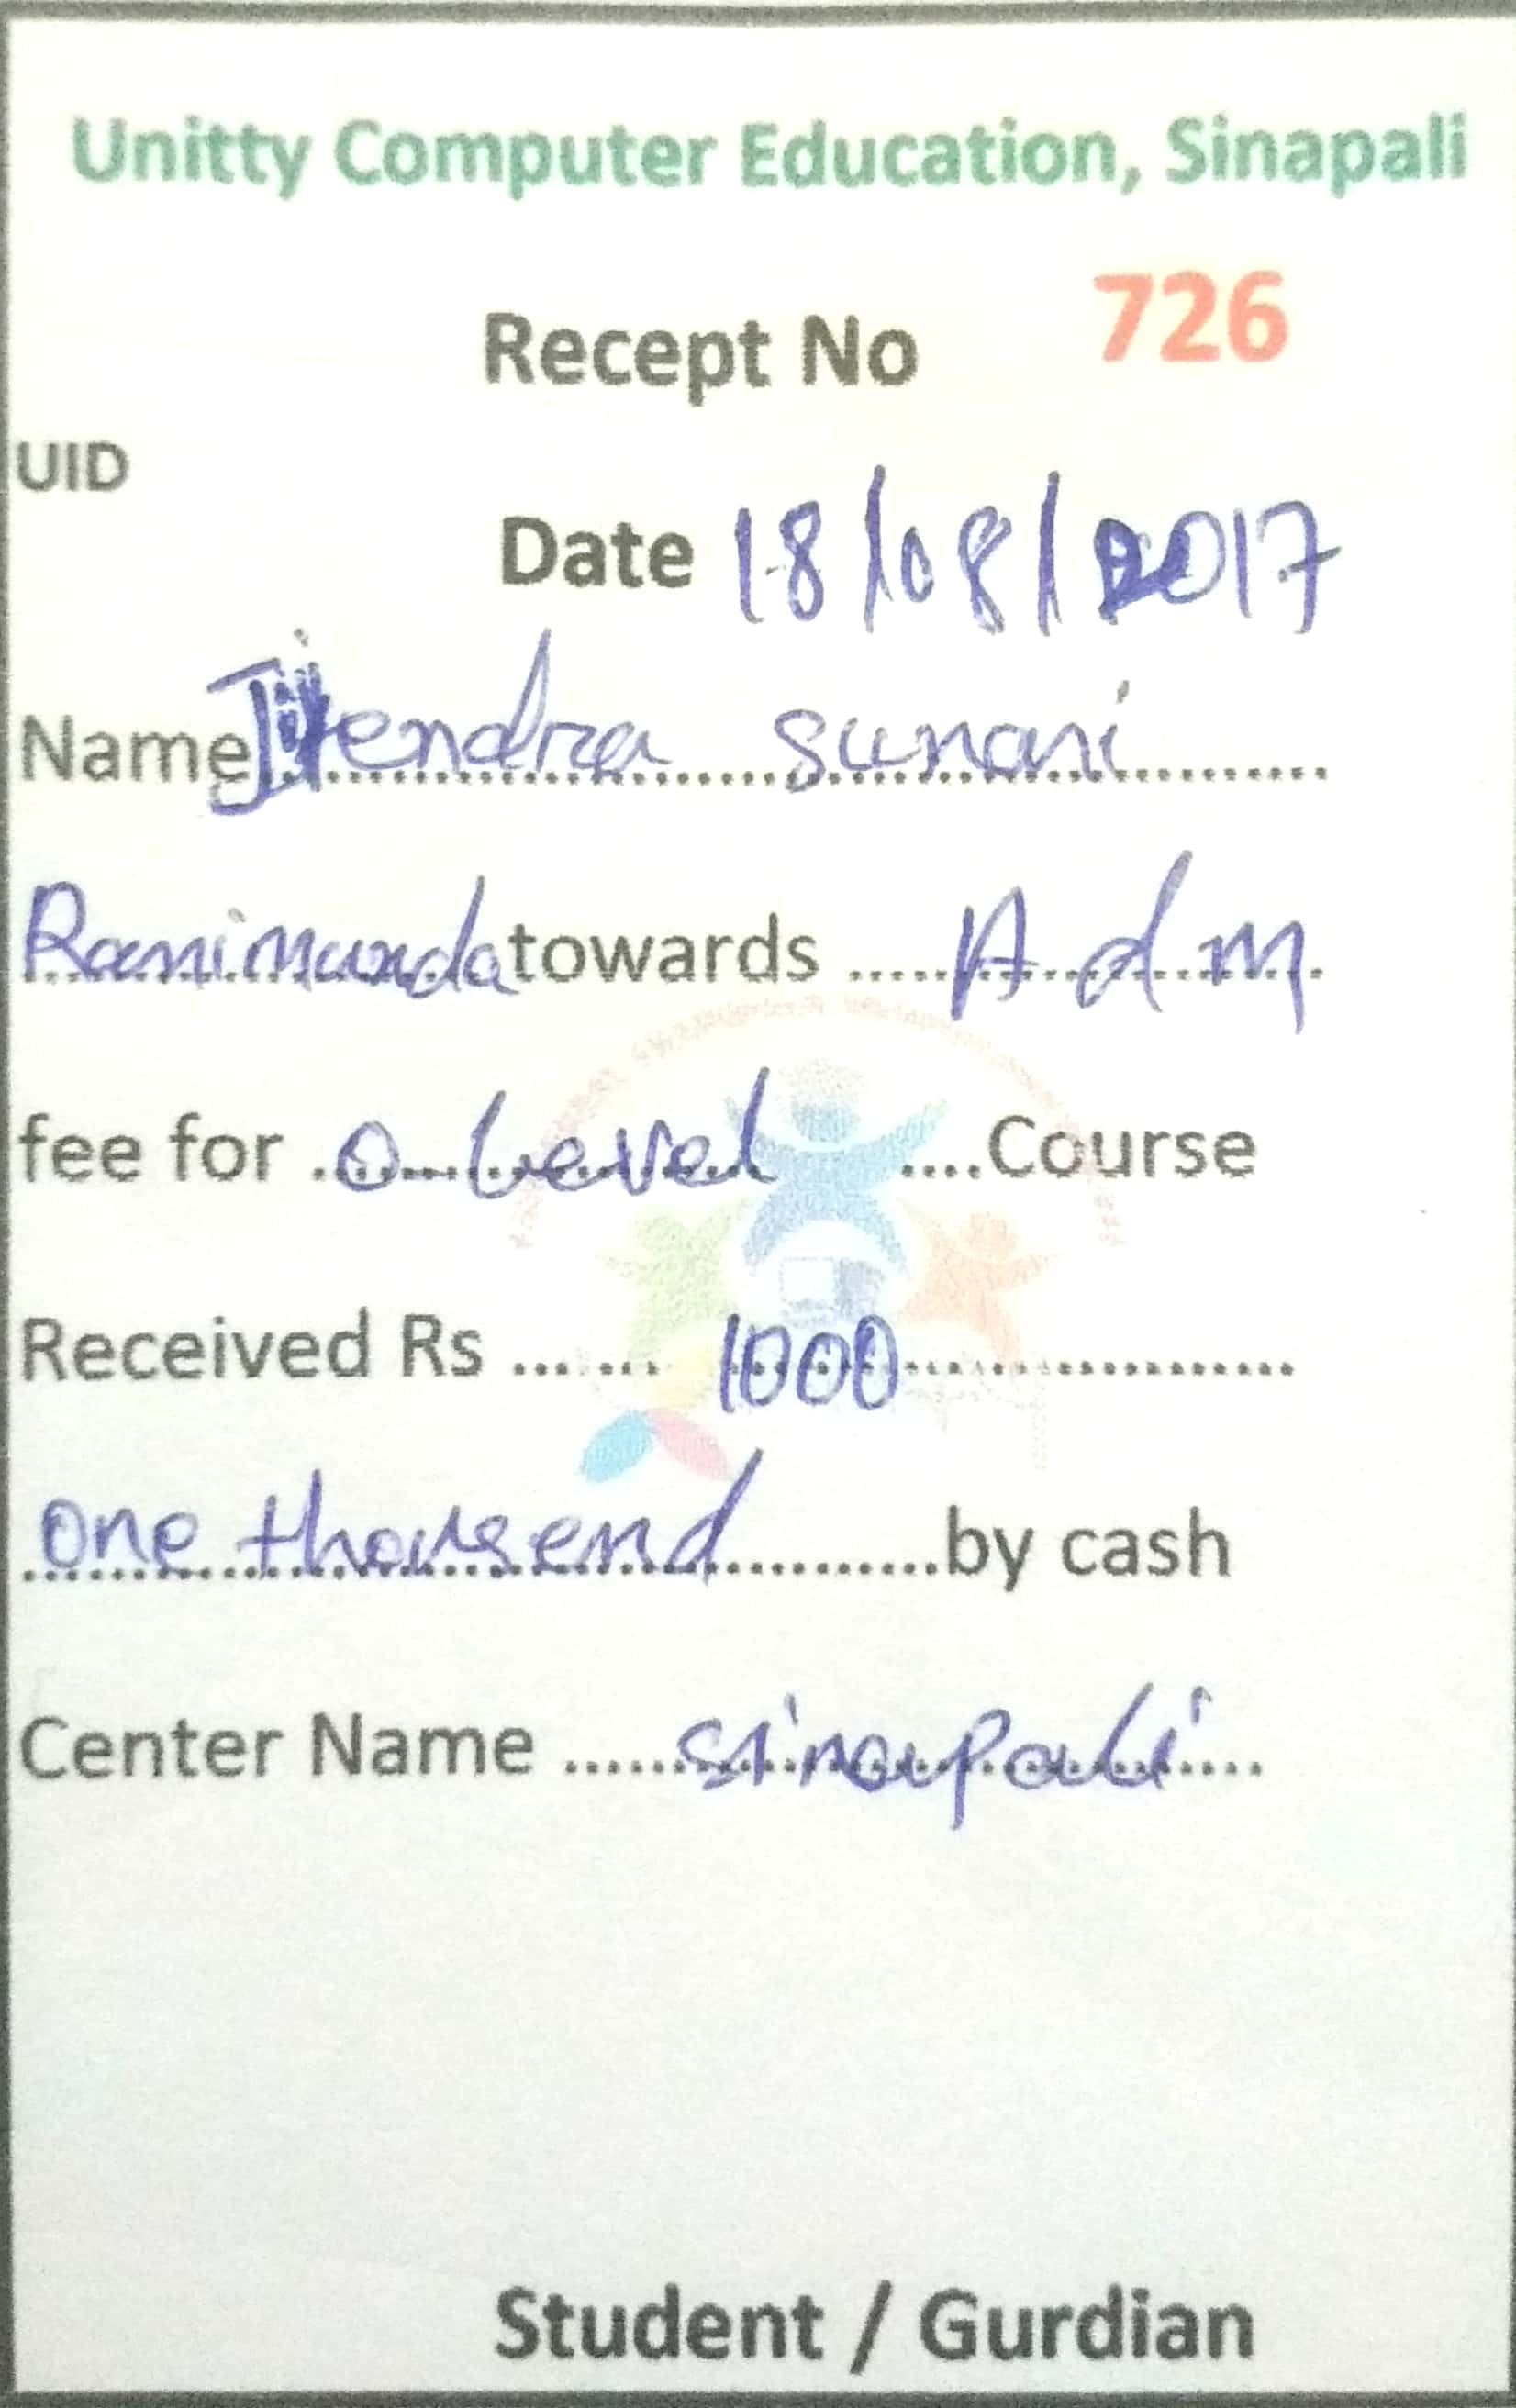 Unitty Computer Education, Sinapali
Recept No 726
UID
Date 18/08/2017
Name Jitendra sunani
Ranimunda towards ..... Adm
fee for ..o-Level ....Course
Received Rs ...... 1000..................
one thousend...........by cash
Center Name ......sinapali....
Student / Gurdian